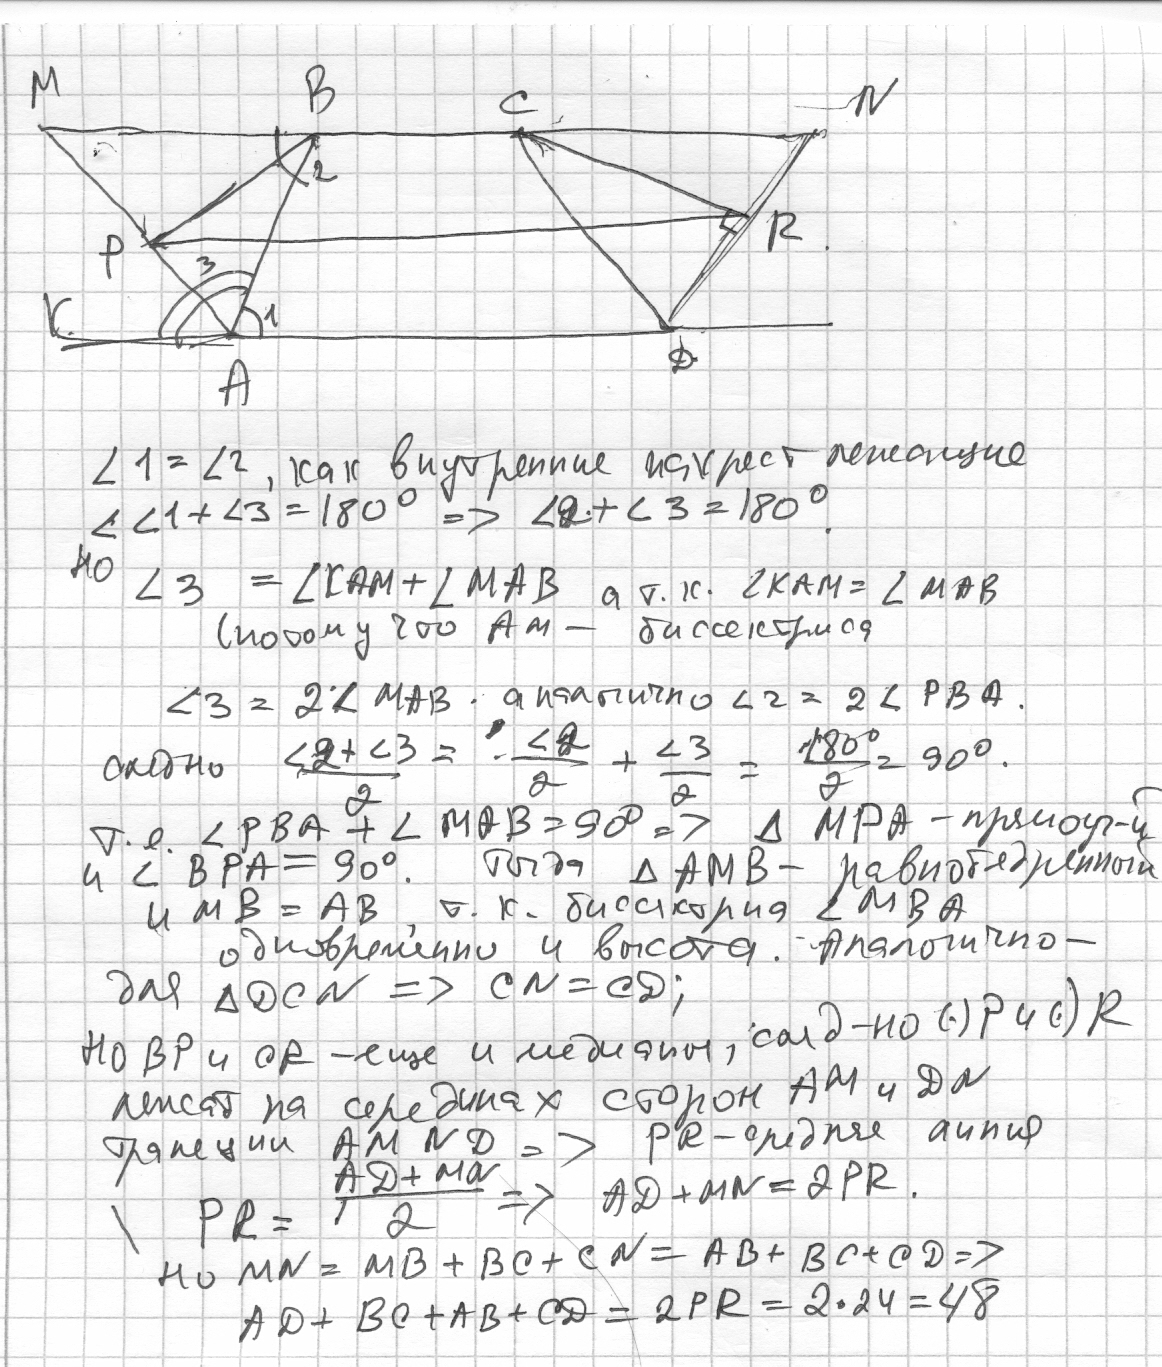 M B C N
2
P R.
3
K. 1
A D
∠1 = ∠2, как внутренние накрест лежащие
∠ ∠1 + ∠3 = 180° => ∠2 + ∠3 = 180°.
но ∠3 = ∠KAM + ∠MAB а т.к. ∠KAM = ∠MAB
(потому что AM – биссектриса
∠3 = 2∠MAB. аналогично ∠2 = 2∠PBA.
следно (∠2 + ∠3)/2 = ∠2/2 + ∠3/2 = 180°/2 = 90°.
т.е. ∠PBA + ∠MAB = 90° => Δ MPA – прямоуг-й
и ∠BPA = 90°. Тогда Δ AMB – равнобедренный
и MB = AB, т.к. биссектриса ∠MBA
одновременно и высота. Аналогично –
для ΔDCN => CN = CD;
Но BP и CR – еще и медианы, след-но (·)P и (·)R
лежат на серединах сторон AM и DN
трапеции AMND => PR – средняя линия
PR = (AD + MN)/2 => AD + MN = 2PR.
но MN = MB + BC + CN = AB + BC + CD =>
AD + BC + AB + CD = 2PR = 2·24 = 48